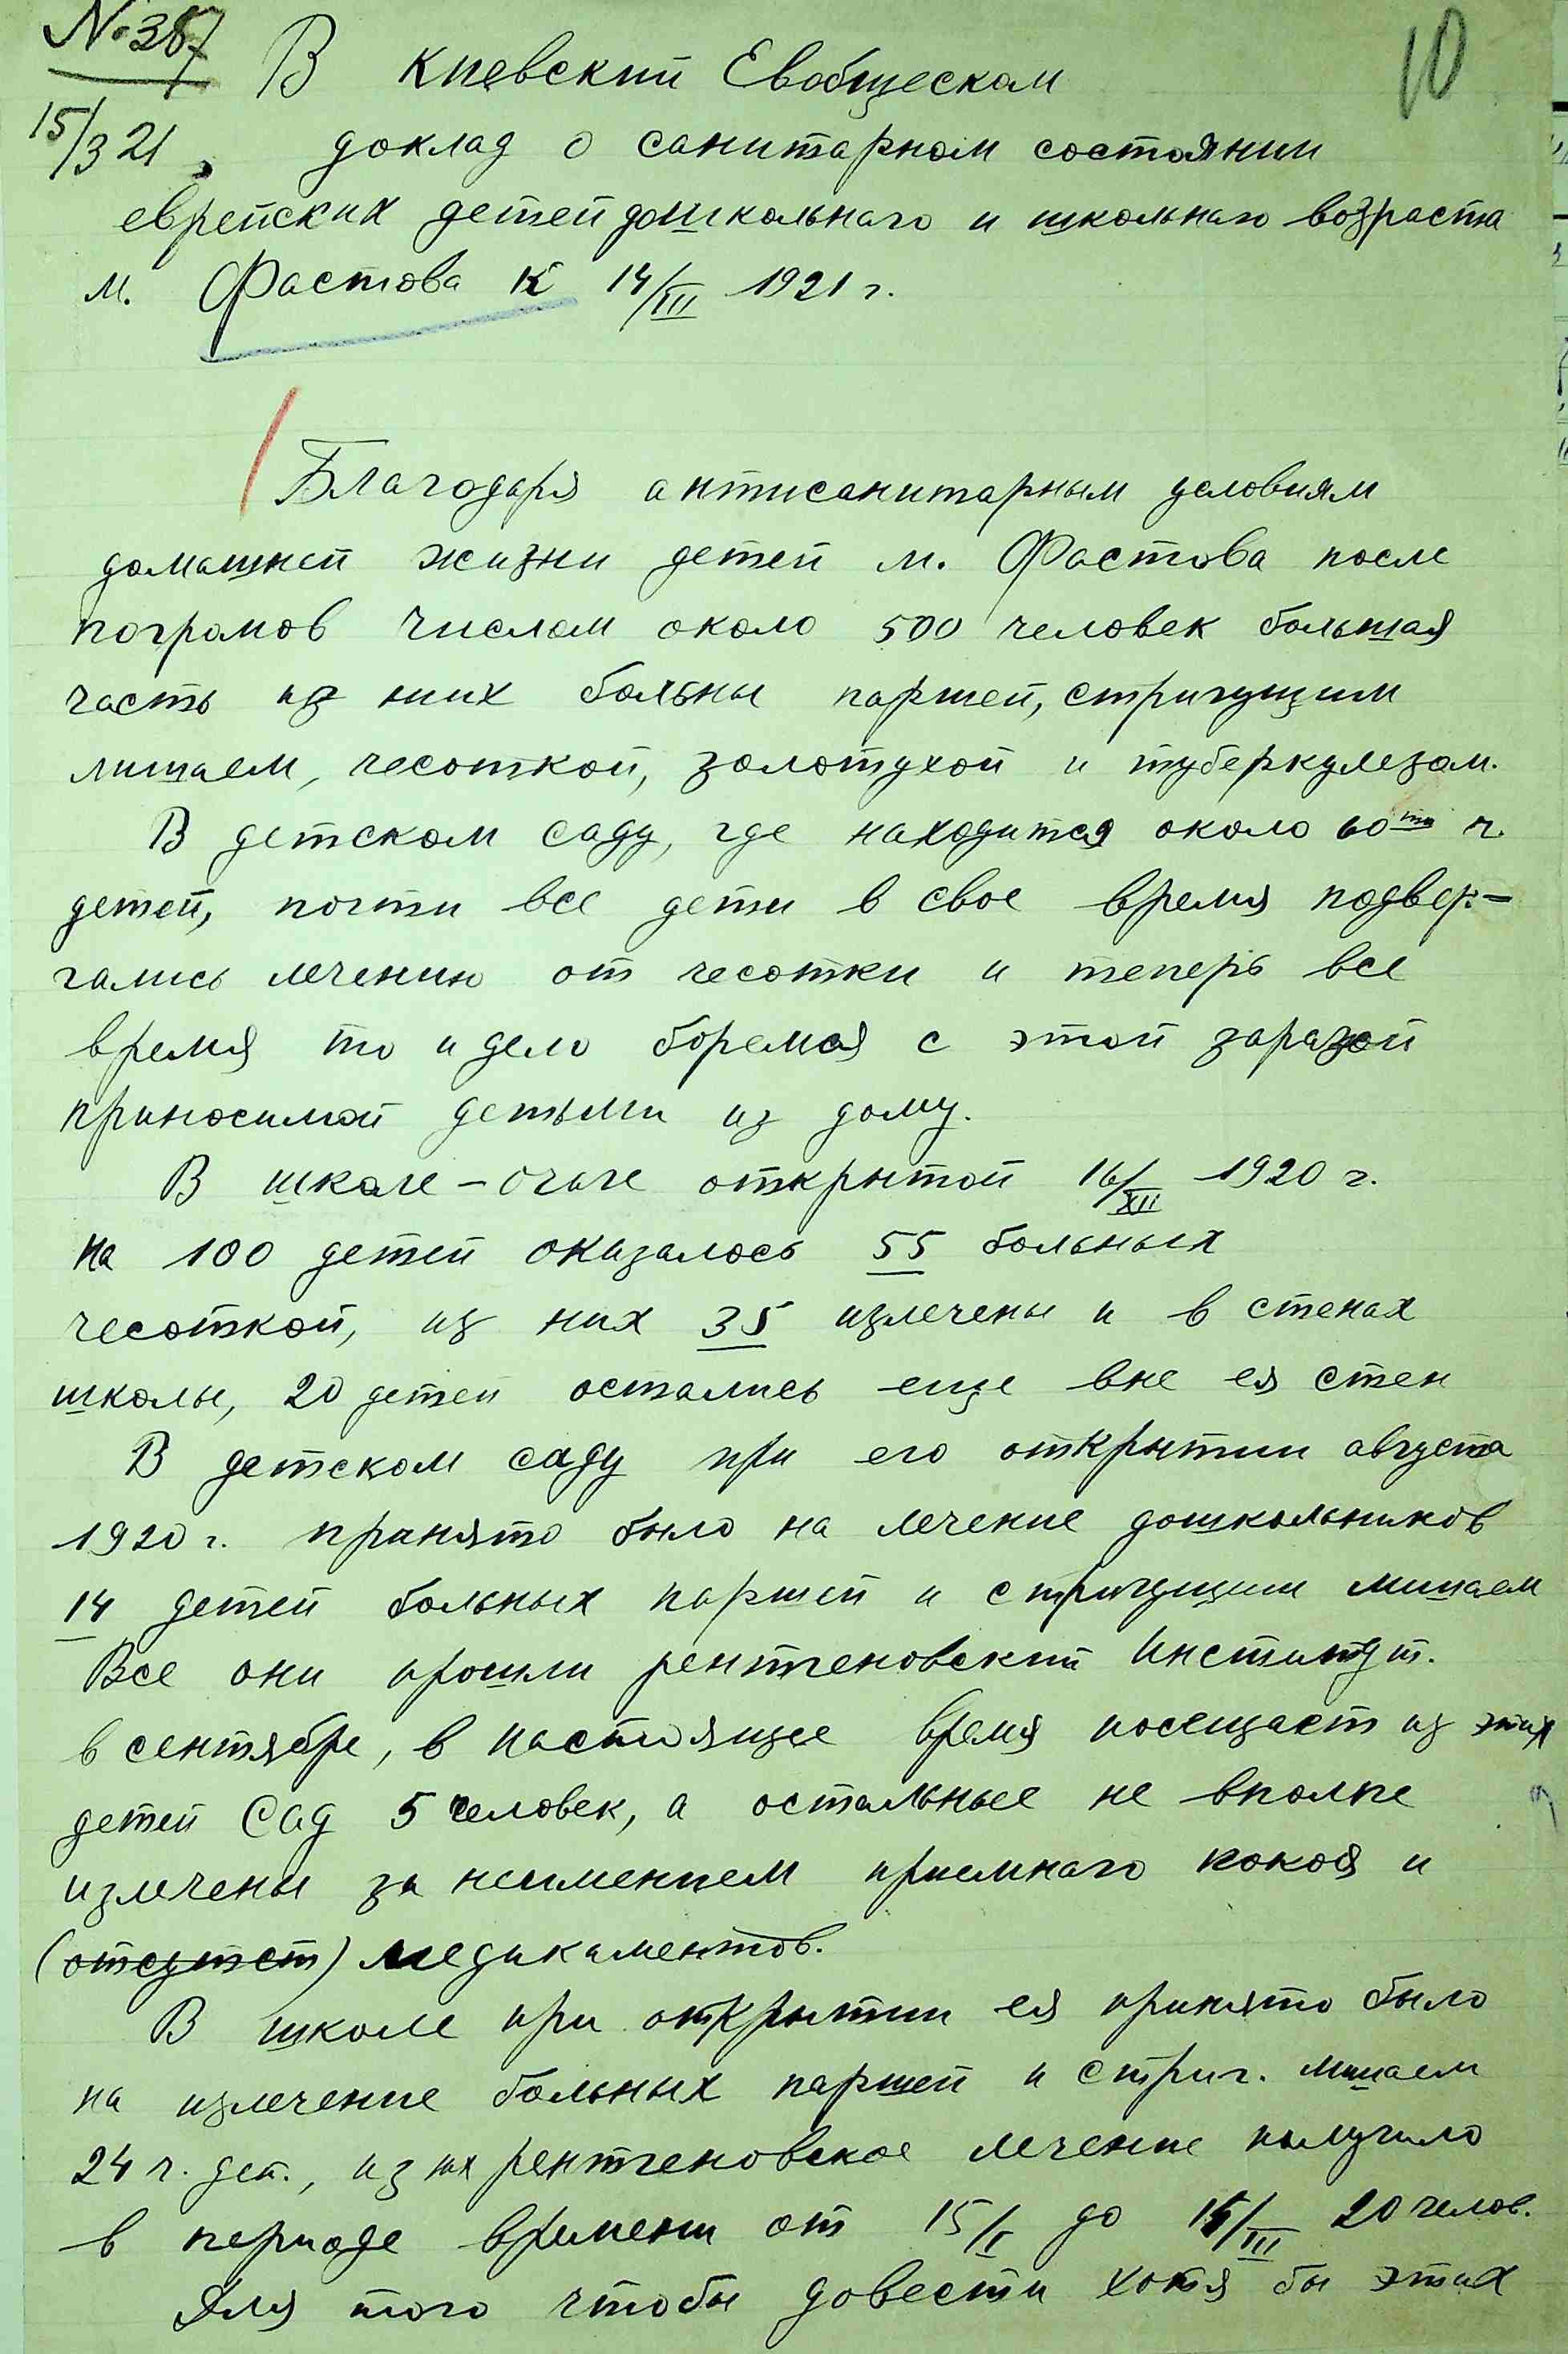 № 387
15/3 21
10
В Киевский Евобщеском
доклад о санитарном состоянии
еврейских детей дошкольнаго и школьнаго возраста
м. Фастова к 14/III 1921 г.
Благодаря антисанитарным условиям
домашней жизни детей м. Фастова после
погромов числом около 500 человек большая
часть из них больны паршей, стригущим
лишаем, чесоткой, золотухой и туберкулезом.
В детском саду, где находится около 60ти ч.
детей, почти все дети в свое время подвер-
гались лечению от чесотки и теперь все
время то и дело боремся с этой заразой
приносимой детьми из дому.
В школе-очаге открытой 16/XII 1920 г.
на 100 детей оказалось 55 больных
чесоткой, из них 35 излечены и в стенах
школы, 20 детей остались еще вне ея стен
В детском саду при его открытии августа
1920 г. принято было на лечение дошкольников
14 детей больных паршей и стригущим лишаем
Все они прошли рентгеновский институт.
в сентябре, в настоящее время посещает из этих
детей Сад 5 человек, а остальные не вполне
излечены за неимением приемнаго покоя и
(отсутст) медикаментов.
В школе при открытии ея принято было
на излечение больных паршей и стриг. лишаем
24 ч. дет., из них рентгеновское лечение получило
в периоде времени от 15/I до 15/III 20 челов.
Для того чтобы довести хотя бы этих